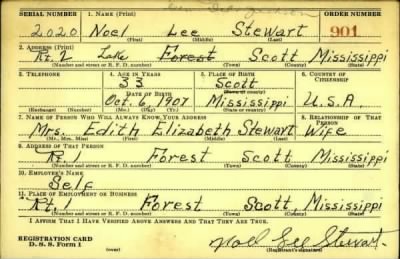 SERIAL NUMBER 1. NAME (Print) ORDER NUMBER
2020 Noel Lee Stewart 901
(First) (Middle) (Last)
2. ADDRESS (Print)
Rt. 2 Lake Forest Scott Mississippi
(Number and street or R. F. D. number) (Town) (County) (State)
3. TELEPHONE 4. AGE IN YEARS 5. PLACE OF BIRTH 6. COUNTRY OF CITIZENSHIP
33 Scott
DATE OF BIRTH (Town or county)
Oct. 6, 1907 Mississippi U.S.A.
(Exchange) (Number) (Mo.) (Day) (Yr.) (State or country)
7. NAME OF PERSON WHO WILL ALWAYS KNOW YOUR ADDRESS 8. RELATIONSHIP OF THAT PERSON
Mrs. Edith Elizabeth Stewart Wife
(Mr., Mrs., Miss) (First) (Middle) (Last)
9. ADDRESS OF THAT PERSON
Rt. 1 Forest Scott Mississippi
(Number and street or R. F. D. number) (Town) (County) (State)
10. EMPLOYER'S NAME
Self
11. PLACE OF EMPLOYMENT OR BUSINESS
Rt. 1 Forest Scott, Mississippi
(Number and street or R. F. D. number) (Town) (County) (State)
I AFFIRM THAT I HAVE VERIFIED ABOVE ANSWERS AND THAT THEY ARE TRUE.
REGISTRATION CARD
D. S. S. Form 1 (over) Noel Lee Stewart
(Registrant's signature)